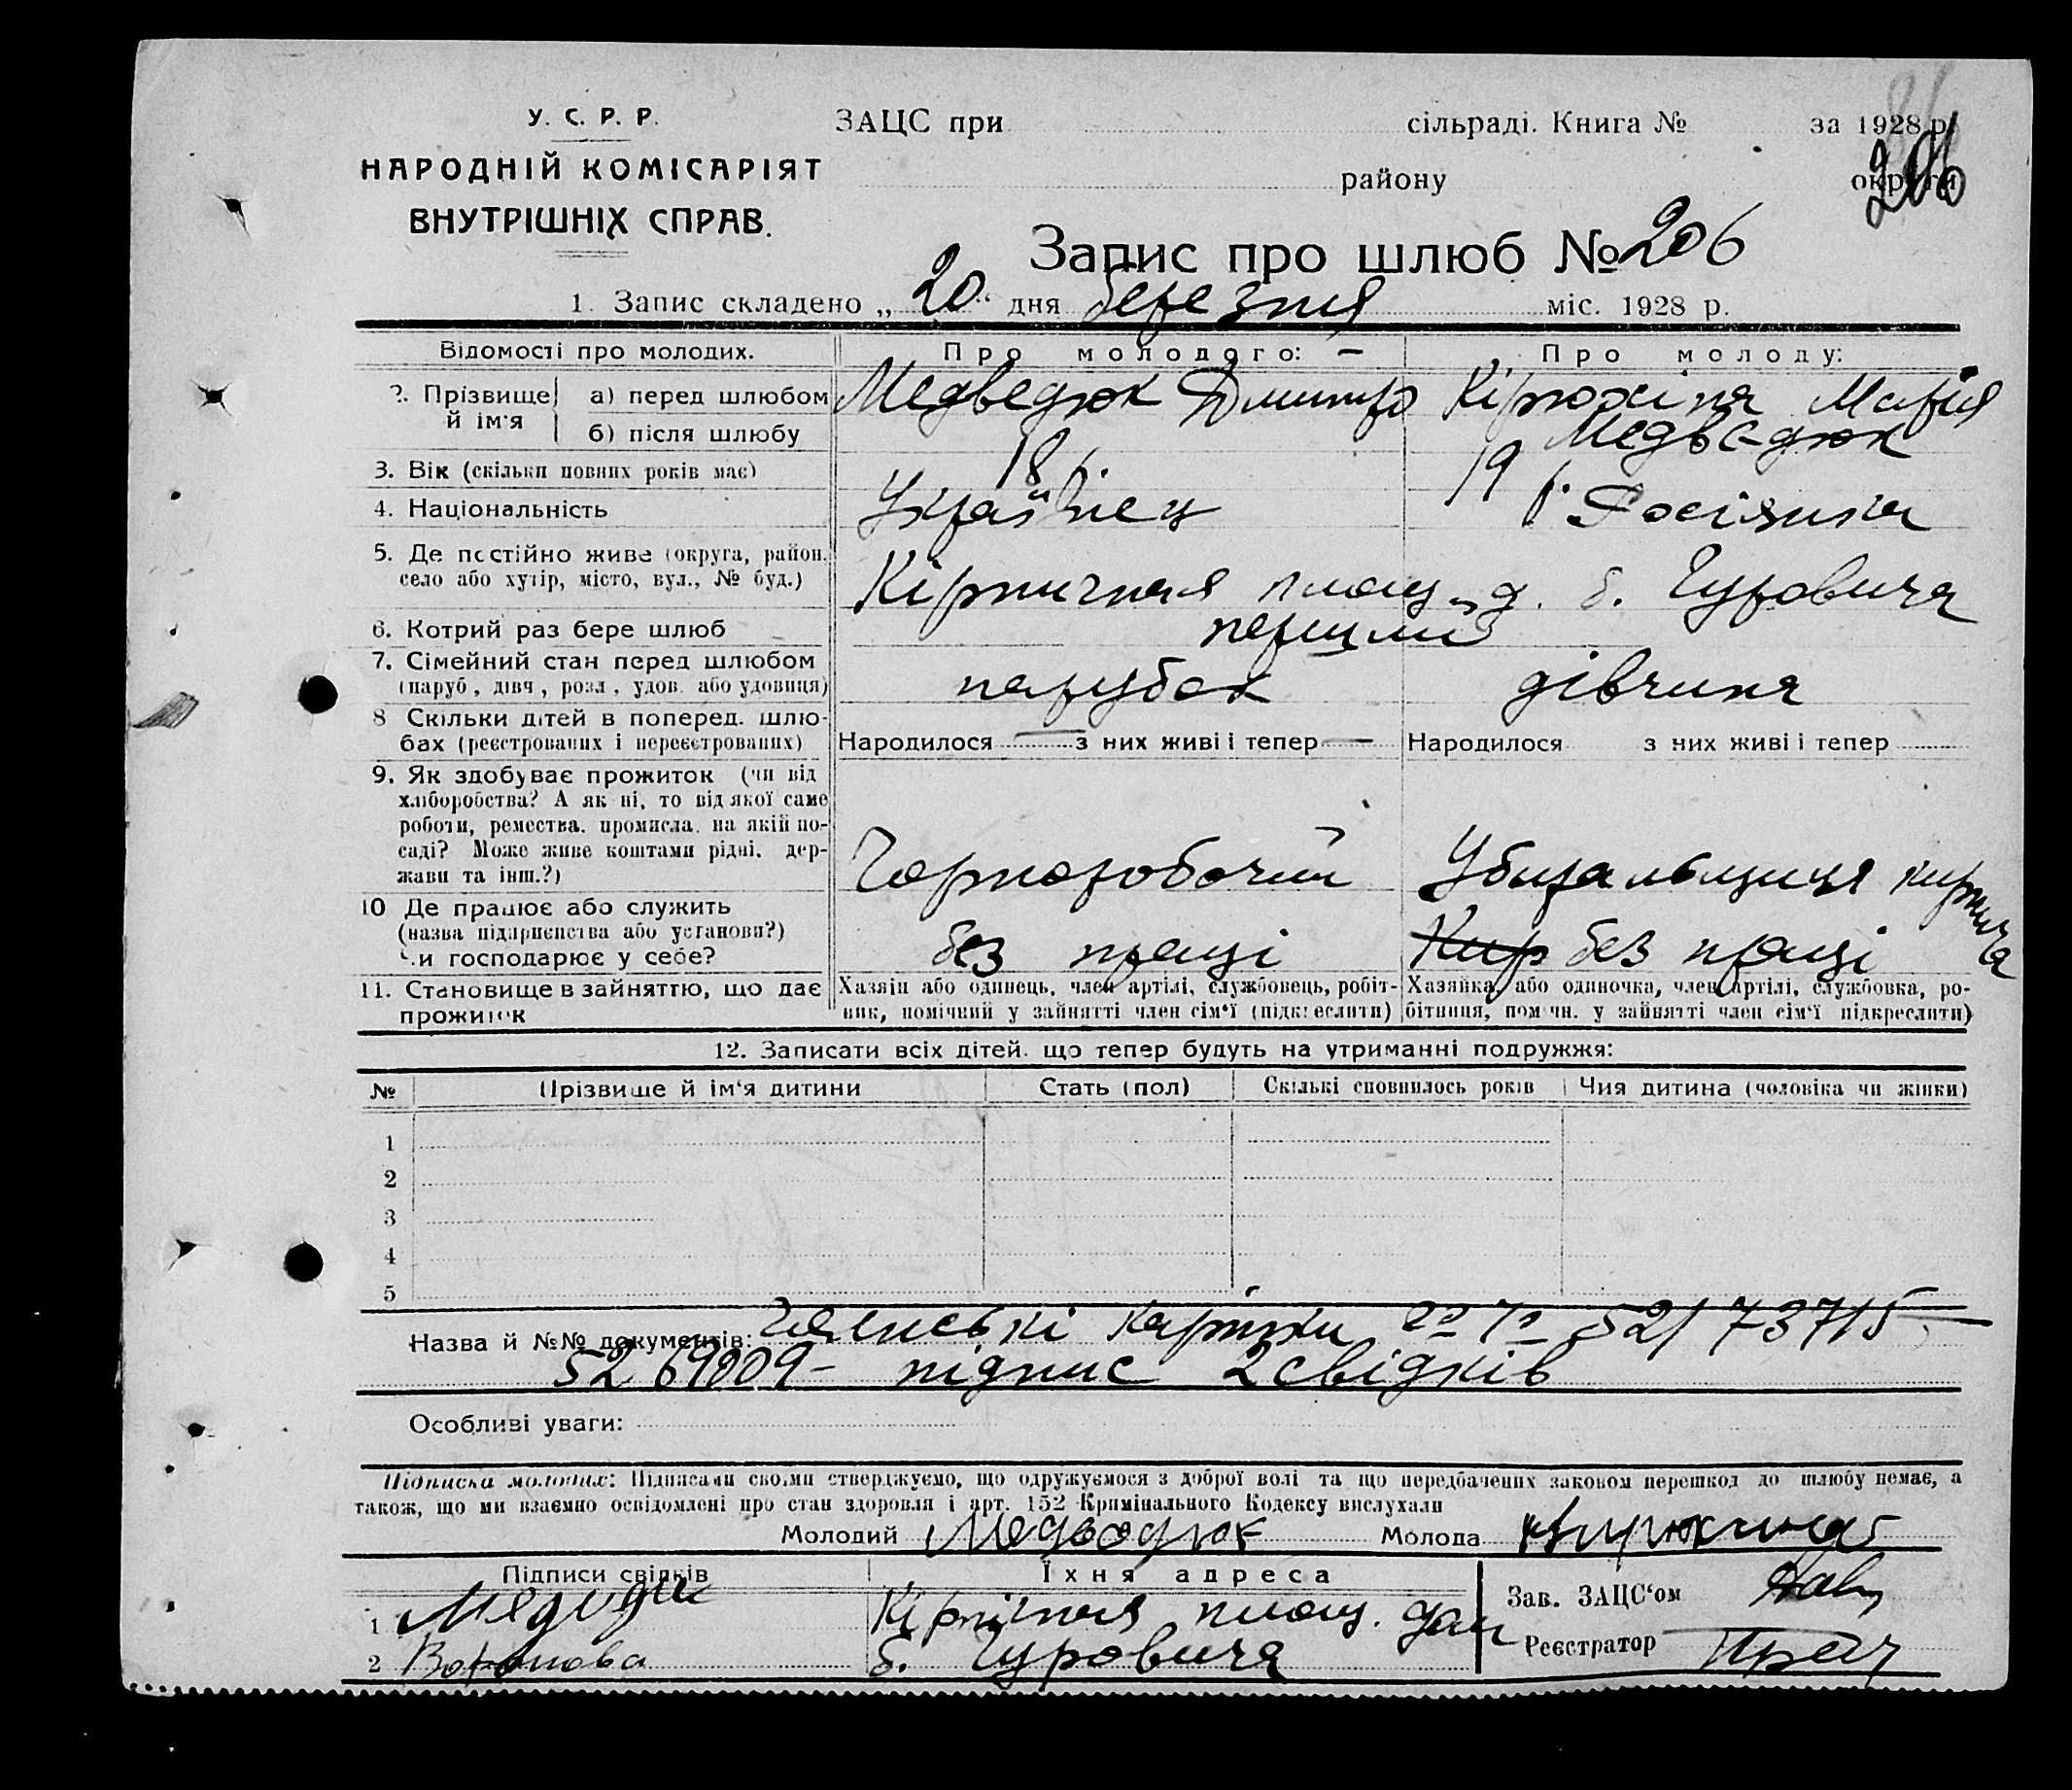 У. С. Р. Р.
НАРОДНІЙ КОМІСАРІЯТ
ВНУТРІШНІХ СПРАВ.
ЗАЦС при сільраді. Книга № за 1928 р.
району округи
206
Запис про шлюб № 206
1. Запис складено „20“ дня березня міс. 1928 р.
Відомості про молодих. Про молодого: — Про молоду:
2. Прізвище й ім'я
а) перед шлюбом Медведюк Дмитро Кірюхіна Марія
б) після шлюбу Медведюк
3. Вік (скільки повних років має) 18 р. 19 р.
4. Національність Українец Росіянка
5. Де постійно живе (округа, район.
село або хутір, місто, вул., № буд.) Кірпичная площ. д. б. Гуровича
6. Котрий раз бере шлюб перший
7. Сімейний стан перед шлюбом
(паруб., дівч., розл., удов. або удовиця) парубок дівчина
8 Скільки дітей в поперед. шлю-
бах (реєстрованих і нереєстрованих) Народилося — з них живі і тепер — Народилося з них живі і тепер
9. Як здобуває прожиток (чи від
хліборобства? А як ні, то від якої саме
роботи, ремества. промисла. на якій по-
саді? Може живе коштами рідні. дер-
жави та інш.?) Чорноробочий Убиральщиця кирпича
10 Де працює або служить
(назва підприємства або установи?)
Чи господарює у себе? без праці Кир без праці
11. Становище в зайняттю, що дає
прожиток
Хазяїн або одинець, член артілі, службовець, робіт-
ник, помічний у зайнятті член сім'ї (підкреслити)
Хазяйка, або одиночка, член артілі, службовка, ро-
бітниця, помічн. у зайнятті член сім'ї підкреслити)
12. Записати всіх дітей. що тепер будуть на утриманні подружжя:
№ Прізвище й ім'я дитини Стать (пол) Скількі сповнилось років Чия дитина (чоловіка чи жінки)
1
2
3
4
5
Назва й №№ документів: Членські картки 52/73715 —
підпис 2 свідків
Особливі уваги:
Підписка молодих: Підписами своїми стверджуємо, що одружуємося з доброї волі та що передбачених законом перешкод до шлюбу немає, а
також, що ми взаємно освідомлені про стан здоровля і арт. 152 Кримінального Кодексу вислухали
Молодий Медведюк Молода Кирюхина
Підписи свідків Їхня адреса
1 Кірпічная площ. дом
2 Воронова б. Гуровича
Зав. ЗАЦС'ом
Реєстратор